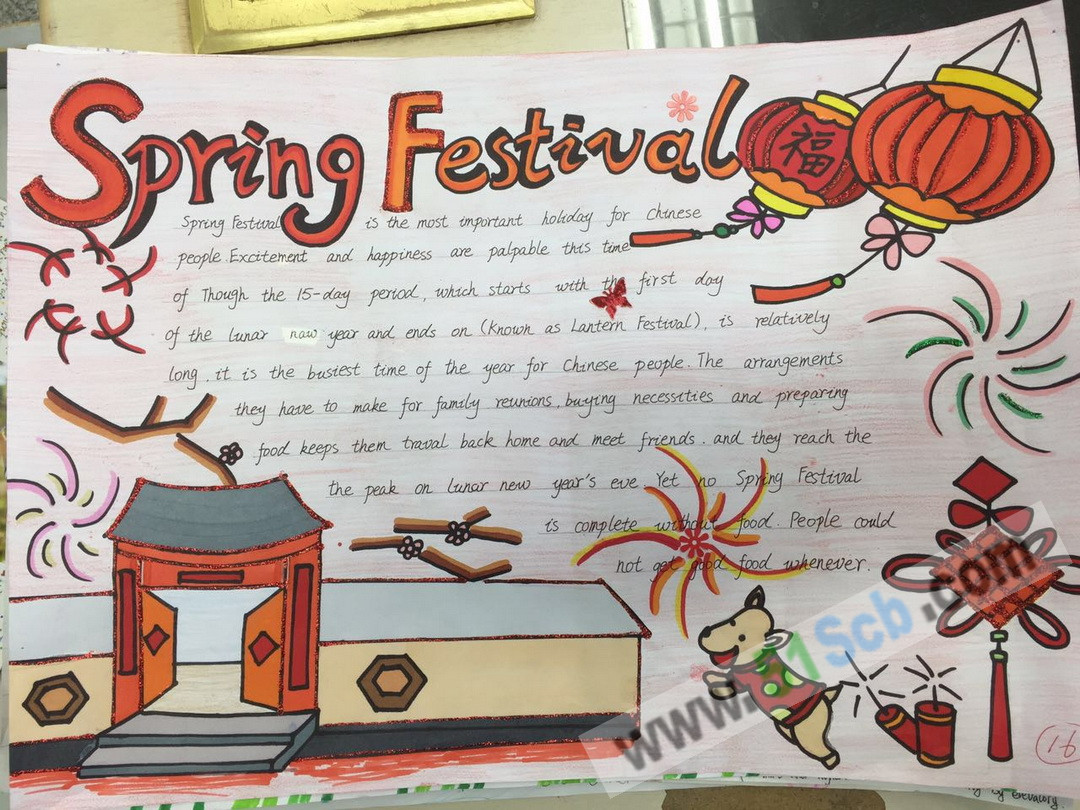 Spring Festival
福
Spring Festival is the most important holiday for chinese
people.Excitement and happiness are palpable this time
of Though the 15-day period, which starts with the first day
of the lunar naw year and ends on (Known as Lantern Festival), is relatively
long, it is the busiest time of the year for Chinese people. The arrangements
they have to make for family reunions, buying necessities and preparing
food keeps them traval back home and meet friends. and they reach the
the peak on lunar new year's eve. Yet no Spring Festival
is complete without food. People could
not get good food whenever.
www.61Scb.com